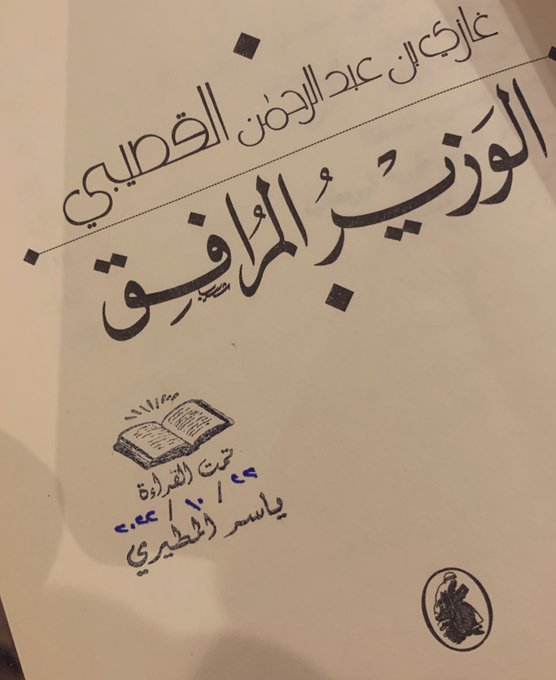 غازي بن عبد الرحمٰن القصيبي
الوَزيرُ المُرافِق
تمت القراءة
٢٢ / ١٠ / ٢٠٢٢
ياسر المطيري